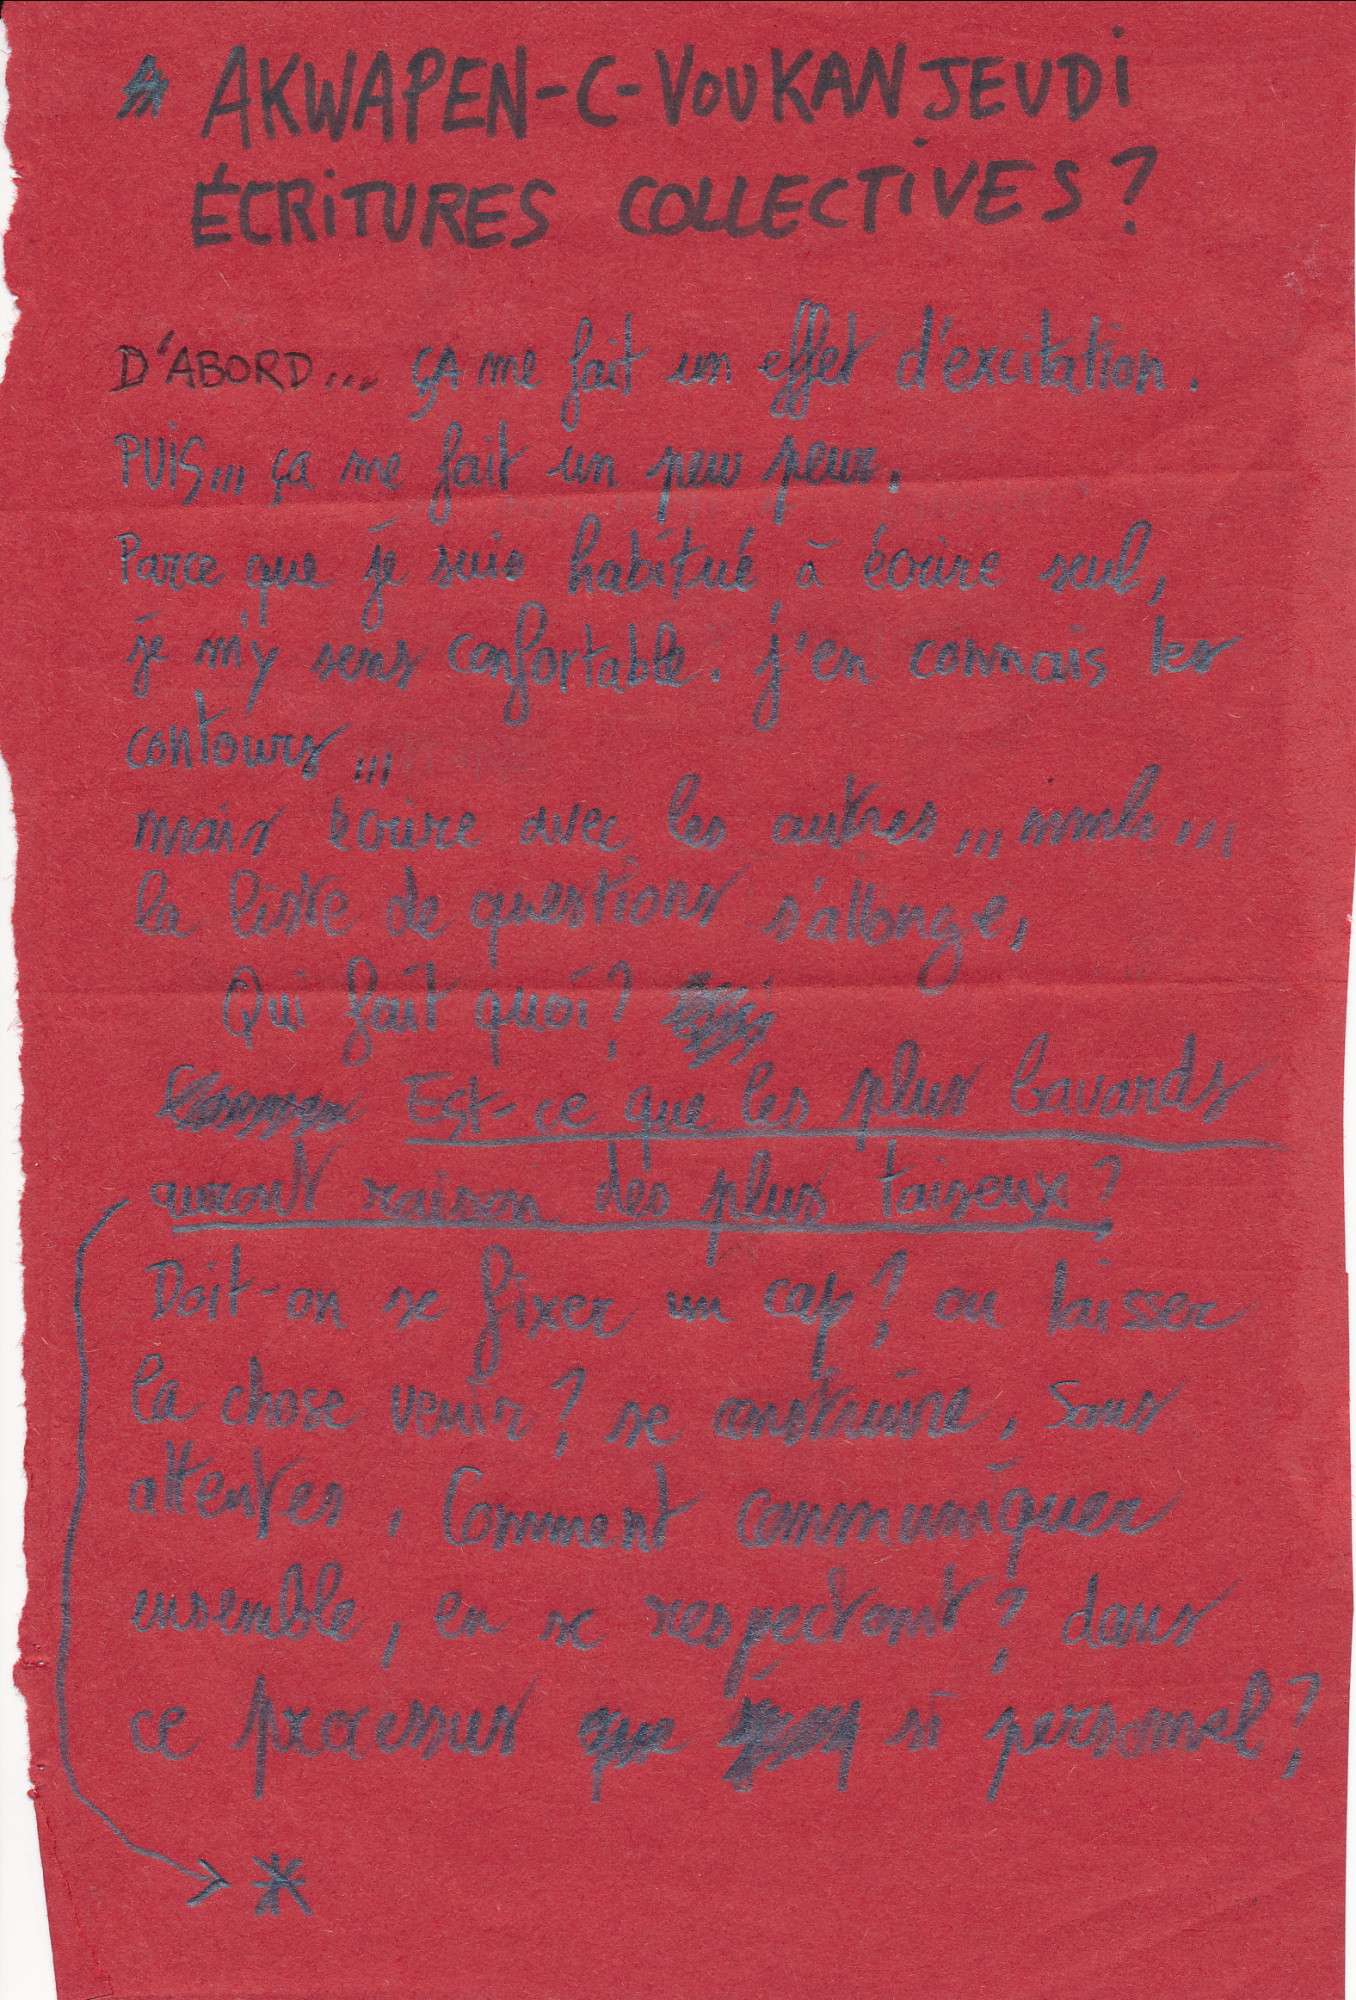 AKWAPEN-C-VOUKANJEUDI
ÉCRITURES COLLECTIVES?
D'ABORD... ÇA me fait un effet d'excitation.
PUIS... ça me fait un peu peur.
Parce que je suis habitué à écrire seul,
je m'y sens confortable. j'en connais les
contours...
mais écrire avec les autres... mmh...
la liste de questions s'allonge,
Qui fait quoi?
Est-ce que les plus bavards
auront raison des plus taiseux?
Doit-on se fixer un cap? ou laisser
la chose venir? se construire, sans
attentes, Comment communiquer
ensemble, en se respectant? dans
ce processus que si personnel?
*